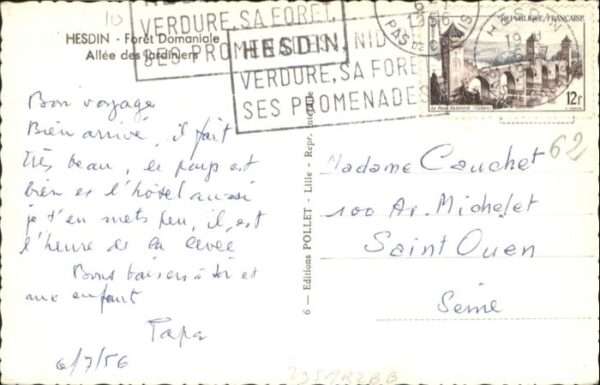 10
VERDURE, SA FORET,
SES PROMENADES
HESDIN, NID
VERDURE, SA FORET
SES PROMENADES
HESDIN
PAS DE CALAIS
REPUBLIQUE FRANÇAISE
12F
HESDIN - Forêt Domaniale
Allée des Jardiniers
Bon voyage
Bien arrivé, il fait
très beau, le pays est
bien et l'hôtel aussi
je t'en mets peu, il est
l'heure de la levée
Bons baisers à toi et
aux enfants
Papa
6/7/56
6 — Editions POLLET - Lille - Repr. interdite
62
Madame Cauchet
100 Av. Michelet
Saint Ouen
Seine